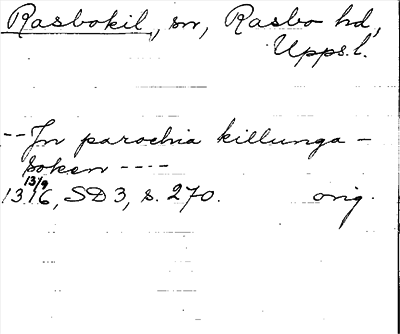 Rasbokil, sn, Rasbo hd,
Upps. l.
-- In parochia killunga -
soken ----
13/9
1316, SD 3, s. 270. orig.